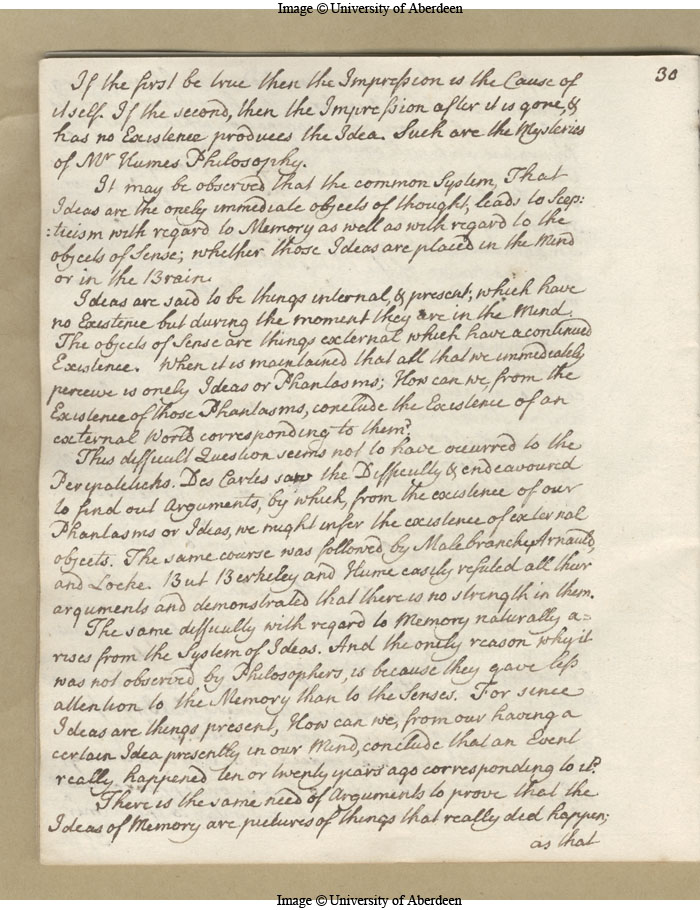 Image © University of Aberdeen
30
If the first be true then the Impression is the Cause of
itself. If the second, then the Impression after it is gone, &
has no Existence produces the Idea. Such are the Mysteries
of Mr Humes Philosophy.
It may be observed that the common System, That
Ideas are the onely immediate objects of thought, leads to Scep:
:ticism with regard to Memory as well as with regard to the
objects of Sense; whether those Ideas are placed in the Mind
or in the Brain.
Ideas are said to be things internal, & present, which have
no Existence but during the moment they are in the Mind.
The objects of Sense are things external which have a continued
Existence. When it is maintained that all that we immediately
perceive is onely Ideas or Phantasms; How can we, from the
Existence of those Phantasms, conclude the Existence of an
external World corresponding to them?
This difficult Question seems not to have occurred to the
Peripateticks. Des Cartes saw the Difficulty & endeavoured
to find out Arguments, by which, from the existence of our
Phantasms or Ideas, we might infer the existence of external
objects. The same course was followed by Malebranche, Arnauld,
and Locke. But Berkeley and Hume easily refuted all their
arguments and demonstrated that there is no strength in them.
The same difficulty with regard to Memory naturally a=
rises from the System of Ideas. And the onely reason why it
was not observed by Philosophers, is because they gave less
attention to the Memory than to the Senses. For since
Ideas are things present, How can we, from our having a
certain Idea presently in our Mind, conclude that an Event
really happened ten or twenty years ago corresponding to it?
There is the same need of Arguments to prove that the
Ideas of Memory are pictures of things that really did happen;
as that
Image © University of Aberdeen